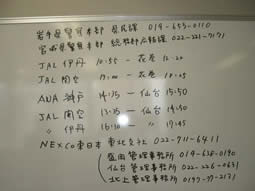 岩手県警察本部 県民課 019-653-0110
宮城県警察本部 総務部広報課 022-221-7171
JAL 伊丹 10:55 - 花巻 12:20
JAL 関空 - 花巻
ANA 神戸 14:35 - 仙台 15:50
JAL 関空 13:25 - 仙台 14:50
〃 伊丹 16:30 - 〃 17:45
NEXCO東日本 東北支社 022-711-6411
盛岡管理事務所 019-638-0190
仙台管理事務所 022-226-0631
北上管理事務所 0197-